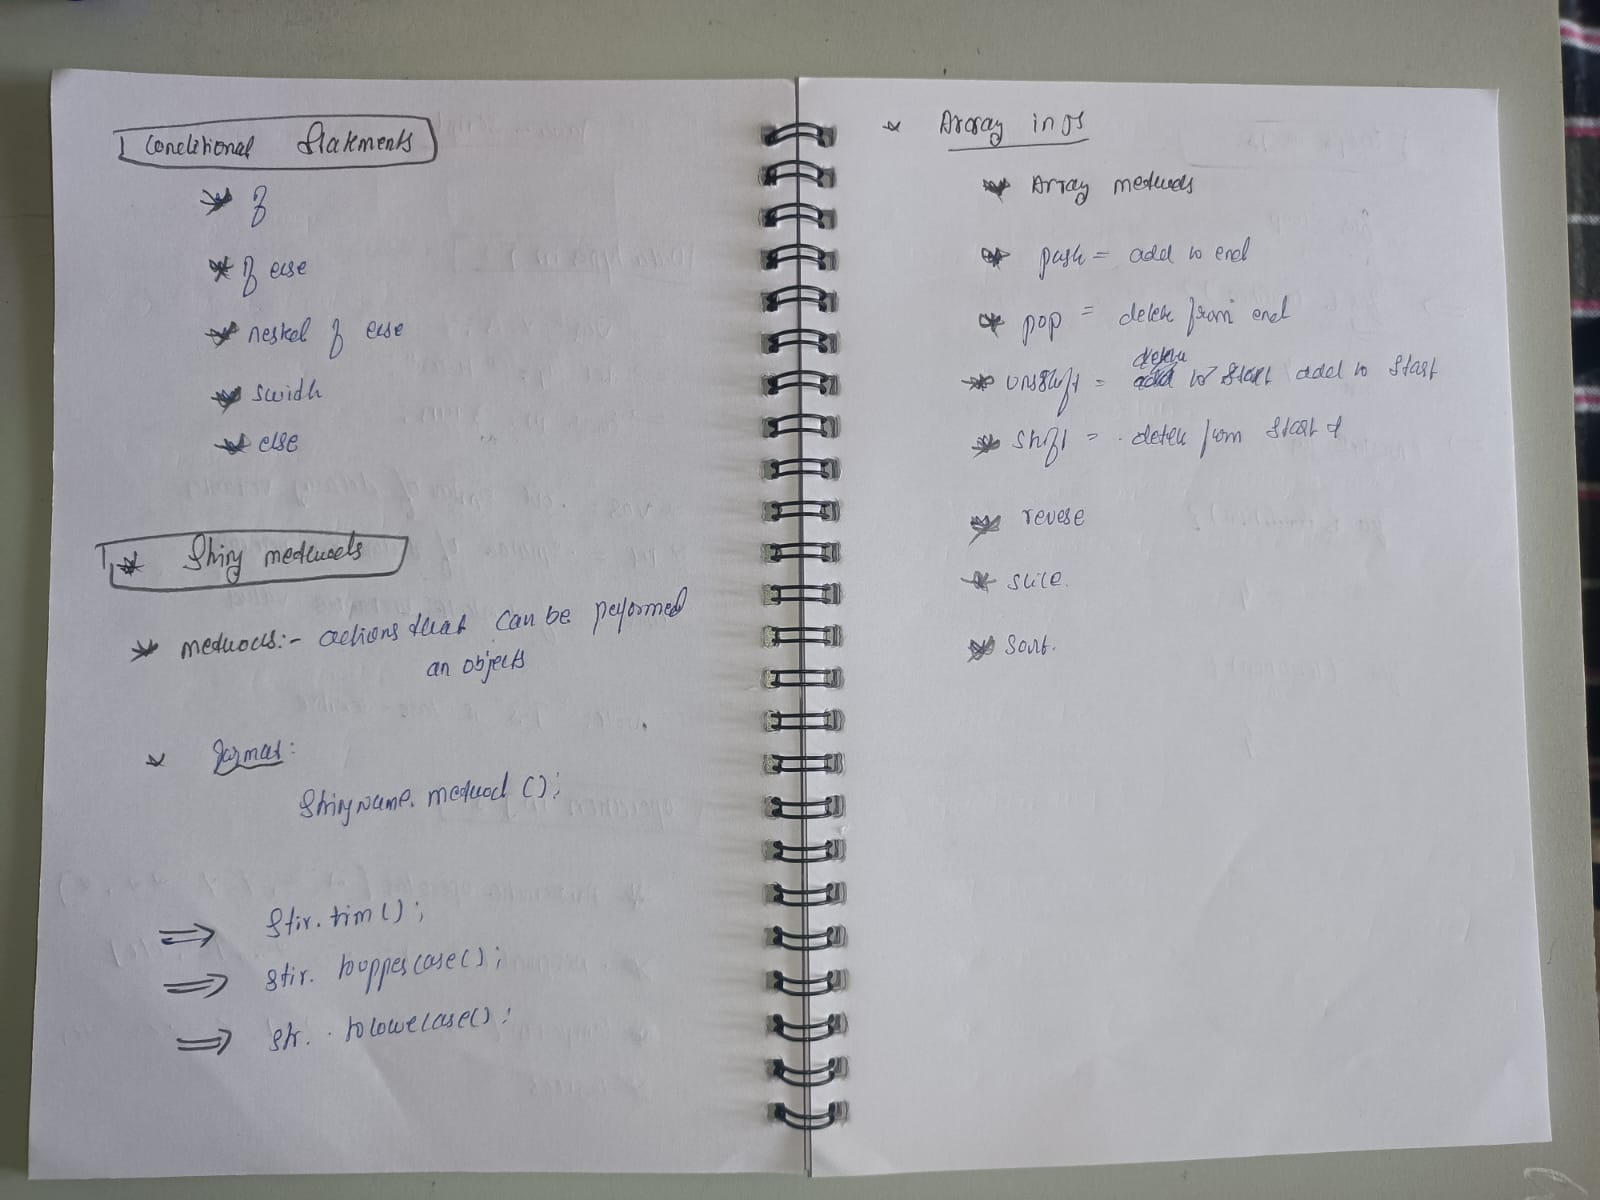 Conditional Statements
* if
* if else
* nested if else
* switch
* else
* String methods
* methods:- actions that can be performed
an objects
* Format:
Stringname. method ();
⇒ Stir. tim();
⇒ stir. touppercase();
⇒ str. . tolowercase();
* Array in JS
* Array methods
* push = add to end
* pop = delete from end
delete
* unshift = add to start add to start
* shift = . delete from start
* revese
* slice.
* sort.